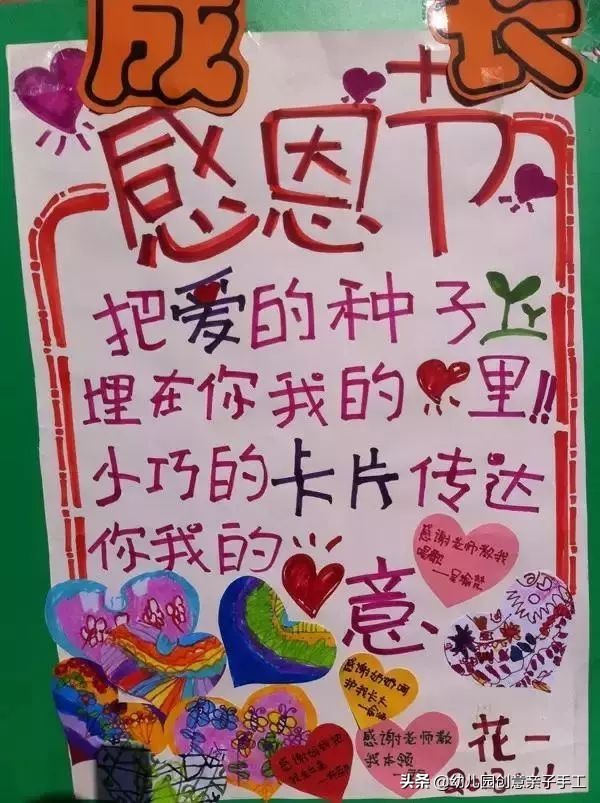 成长
感恩节
把爱的种子
埋在你我的里!!
小巧的卡片传达
你我的意
感谢老师教我
唱歌
感谢奶奶
感谢老师教
我本领
花一
头条 @幼儿园创意亲子手工